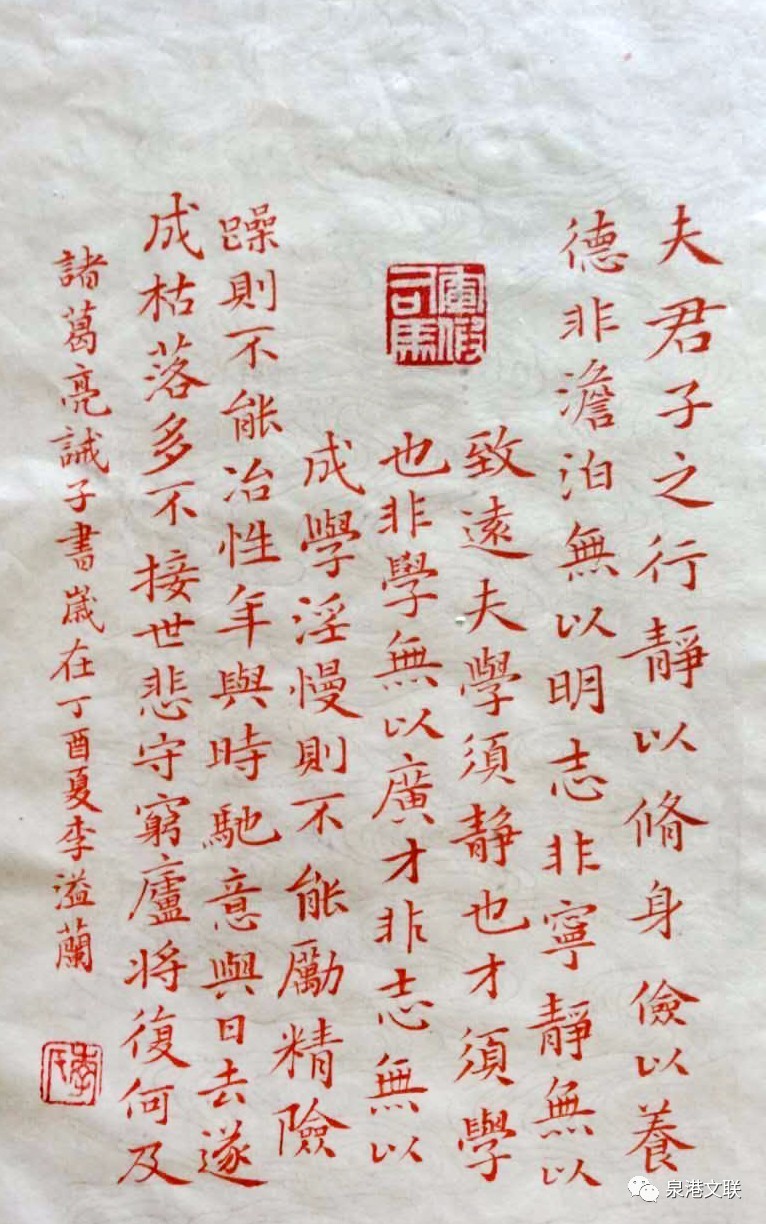 夫君子之行靜以脩身儉以養
德非澹泊無以明志非寧靜無以
致遠夫學須静也才須學
也非學無以廣才非志無以
成學淫慢則不能勵精險
躁則不能冶性年與時馳意與日去遂
成枯落多不接世悲守窮廬將復何及
諸葛亮誡子書歲在丁酉夏李溢蘭
軍假司馬
李氏
泉港文联